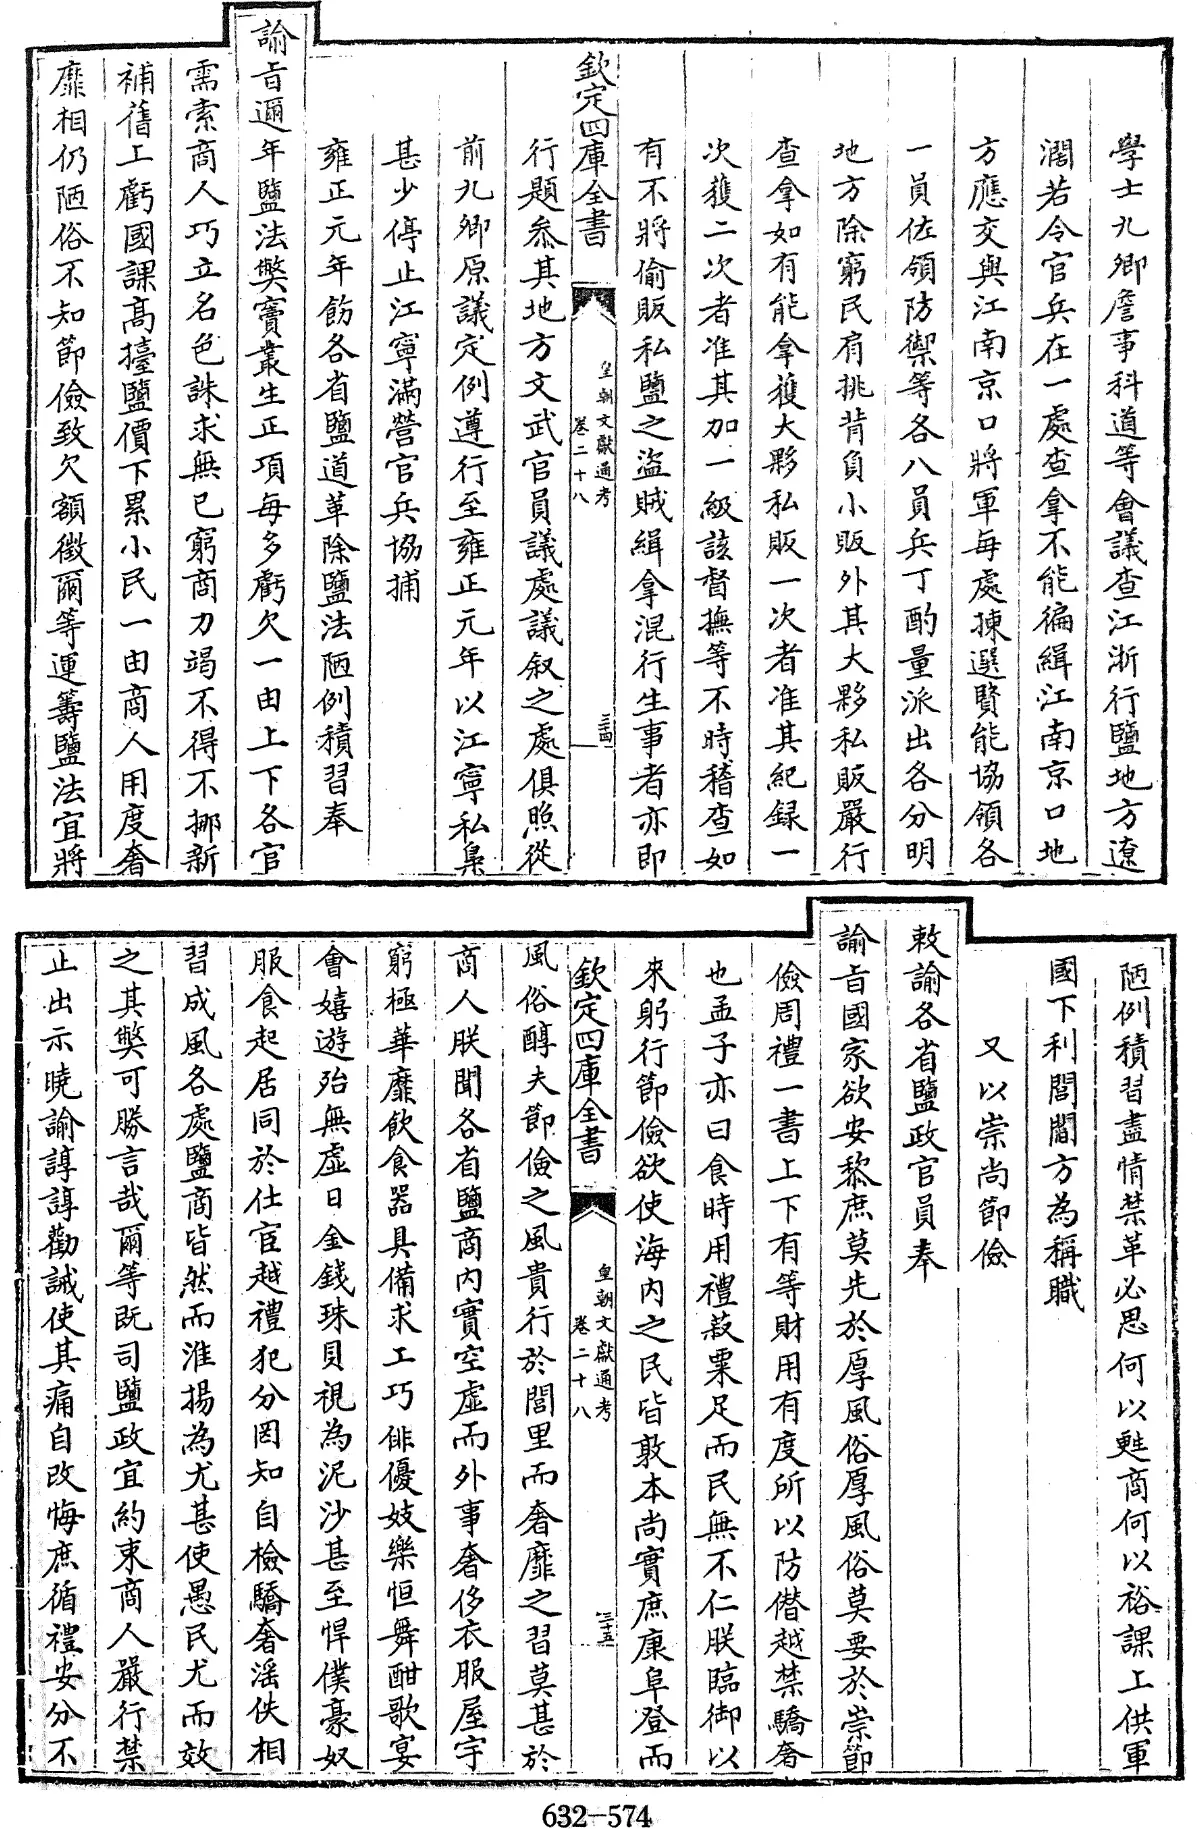 學士九卿詹事科道等會議查江浙行鹽地方遼
濶若令官兵在一處查拿不能徧緝江南京口地
方應交與江南京口將軍每處揀選賢能協領各
一員佐領防禦等各八員兵丁酌量派出各分明
地方除窮民肩挑背負小販外其大夥私販嚴行
查拿如有能拿獲大夥私販一次者准其紀録一
次獲二次者准其加一級該督撫等不時稽查如
有不將偷販私鹽之盜賊緝拿混行生事者亦即
欽定四庫全書
皇朝文獻通考
卷二十八
三十四
行題叅其地方文武官員議處議叙之處俱照從
前九卿原議定例遵行至雍正元年以江寧私梟
甚少停止江寧滿營官兵協捕
雍正元年飭各省鹽道革除鹽法陋例積習奉
諭旨邇年鹽法弊竇叢生正項每多虧欠一由上下各官
需索商人巧立名色誅求無已窮商力竭不得不挪新
補舊上虧國課高擡鹽價下累小民一由商人用度奢
靡相仍陋俗不知節儉致欠額徵爾等運籌鹽法宜將
陋例積習盡情禁革必思何以甦商何以裕課上供軍
國下利閭閻方為稱職
又以崇尚節儉
敕諭各省鹽政官員奉
諭旨國家欲安黎庶莫先於厚風俗厚風俗莫要於崇節
儉周禮一書上下有等財用有度所以防僭越禁驕奢
也孟子亦曰食時用禮菽粟足而民無不仁朕臨御以
來躬行節儉欲使海内之民皆敦本尚實庶康阜登而
欽定四庫全書
皇朝文獻通考
卷二十八
三十五
風俗醇夫節儉之風貴行於閭里而奢靡之習莫甚於
商人朕聞各省鹽商内實空虛而外事奢侈衣服屋宇
窮極華靡飲食器具備求工巧俳優妓樂恒舞酣歌宴
會嬉遊殆無虛日金錢珠貝視為泥沙甚至悍僕豪奴
服食起居同於仕宦越禮犯分罔知自檢驕奢滛佚相
習成風各處鹽商皆然而淮揚為尤甚使愚民尤而效
之其弊可勝言哉爾等既司鹽政宜約束商人嚴行禁
止出示曉諭諄諄勸誡使其痛自改悔庶循禮安分不
632-574